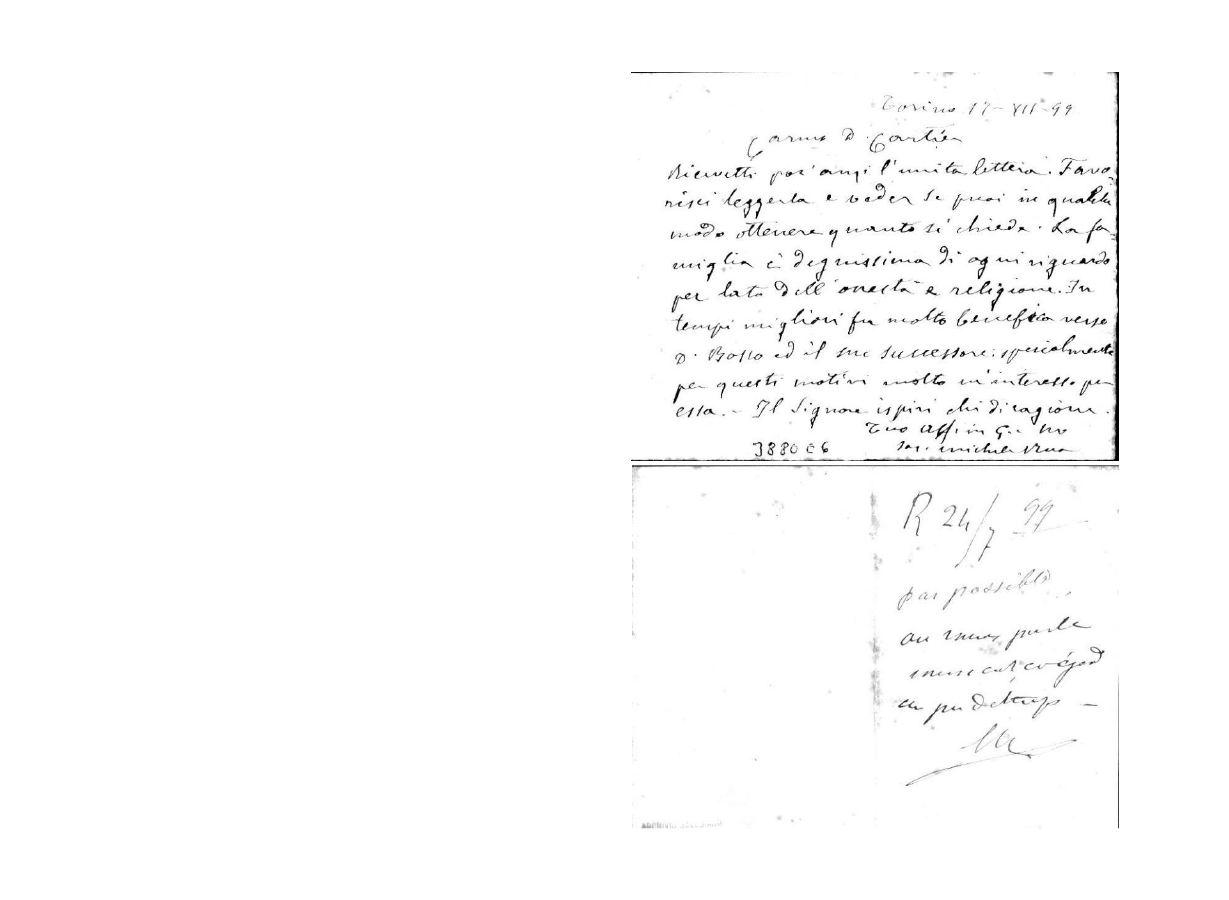 Torino 17-XII-99
Carmo D. Cartier
Ricevetti poc'anzi l'unita lettera. Favo-
risci leggerla e veder se puoi in qualche
modo ottenere quanto si chiede. La fa-
miglia è degnissima di ogni riguardo
per lato dell'onestà e religione. In
tempi migliori fu molto benefica verso
D. Bosco ed il suo successore: specialmente
per questi motivi molto m'interesso per
essa. - Il Signore ispiri chi di ragione.
Tuo Aff. in G.
Sac. Michele Rua
3880 C 6
R 24/7 99
pas possible
au
en peu de temps -